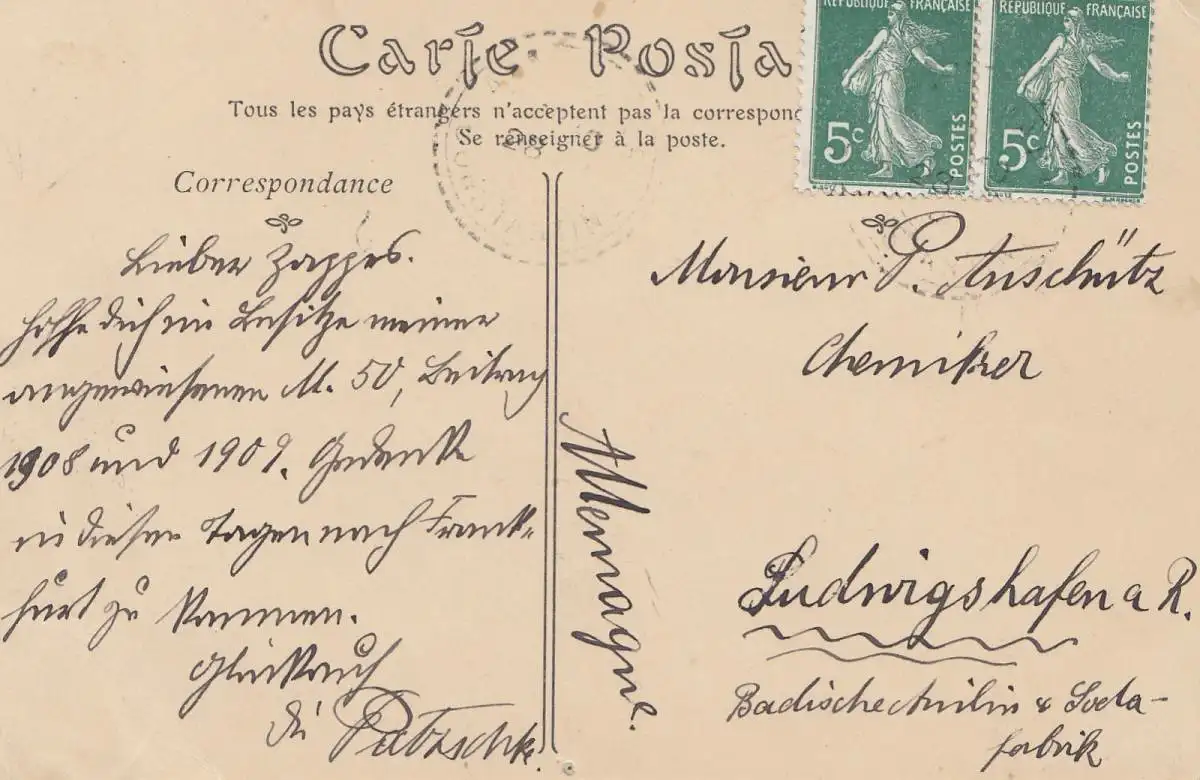 Carte Posta
Tous les pays étrangers n'acceptent pas la correspond
Se renseigner à la poste.
RÉPUBLIQUE FRANÇAISE
5c
POSTES
RÉPUBLIQUE FRANÇAISE
5c
POSTES
Correspondance
Lieber Zappes.
Hoffe dich im Besitze meiner
angewiesenen M. 50, Beitrag
1908 und 1909. Gedenke
in diesen Tagen nach Frank-
furt zu kommen.
Glückauf
Patzschke.
Allemagne.
Monsieur P. Anschütz
Chemiker
Ludwigshafen a R.
Badische Anilin & Soda-
fabrik